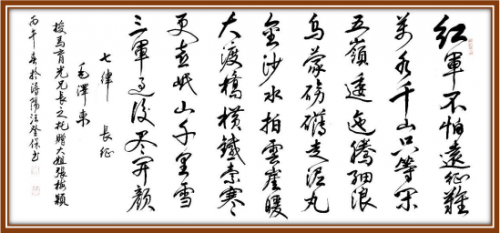 紅軍不怕遠征難
萬水千山只等閑
五嶺逶迤騰細浪
烏蒙磅礴走泥丸
金沙水拍雲崖暖
大渡橋橫鐵索寒
更喜岷山千里雪
三軍過後盡開顏
七律 長征
毛澤東
馬育光兄長之托贈大姐張梅穎
丙午 陽汪 保書